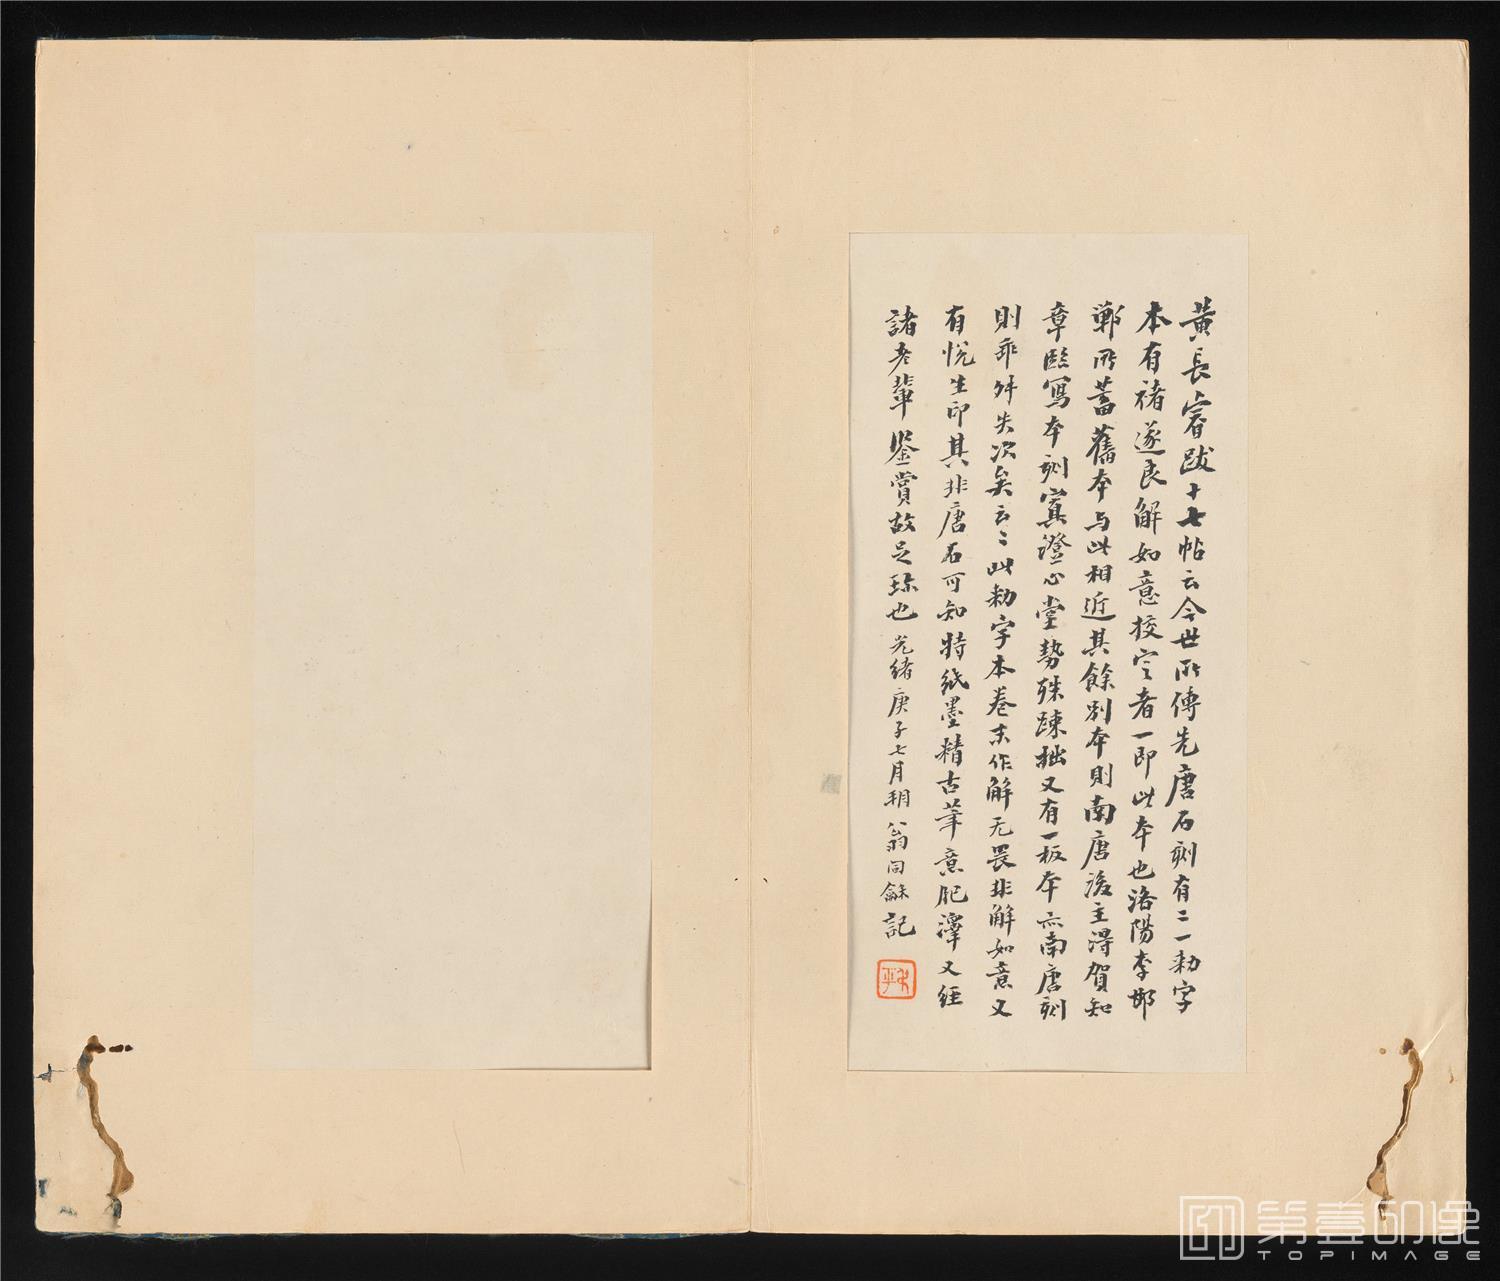 黃長睿跋十七帖云今世所傳先唐石刻有二一勑字
本有褚遂良解如意挍定者一即此本也洛陽李邯
鄲所蓄舊本与此相近其餘別本則南唐後主得賀知
章臨寫本刻寘澄心堂勢殊踈拙又有一板本亦南唐刻
則乖舛失次矣云〻此勑字本卷末作解无畏非解如意又
有悅生印其非唐石可知特紙墨精古筆意肥澤又經
諸老輩鑒賞故足珎也光緒庚子七月朔翁同龢記
第壹印像
TOPIMAGE